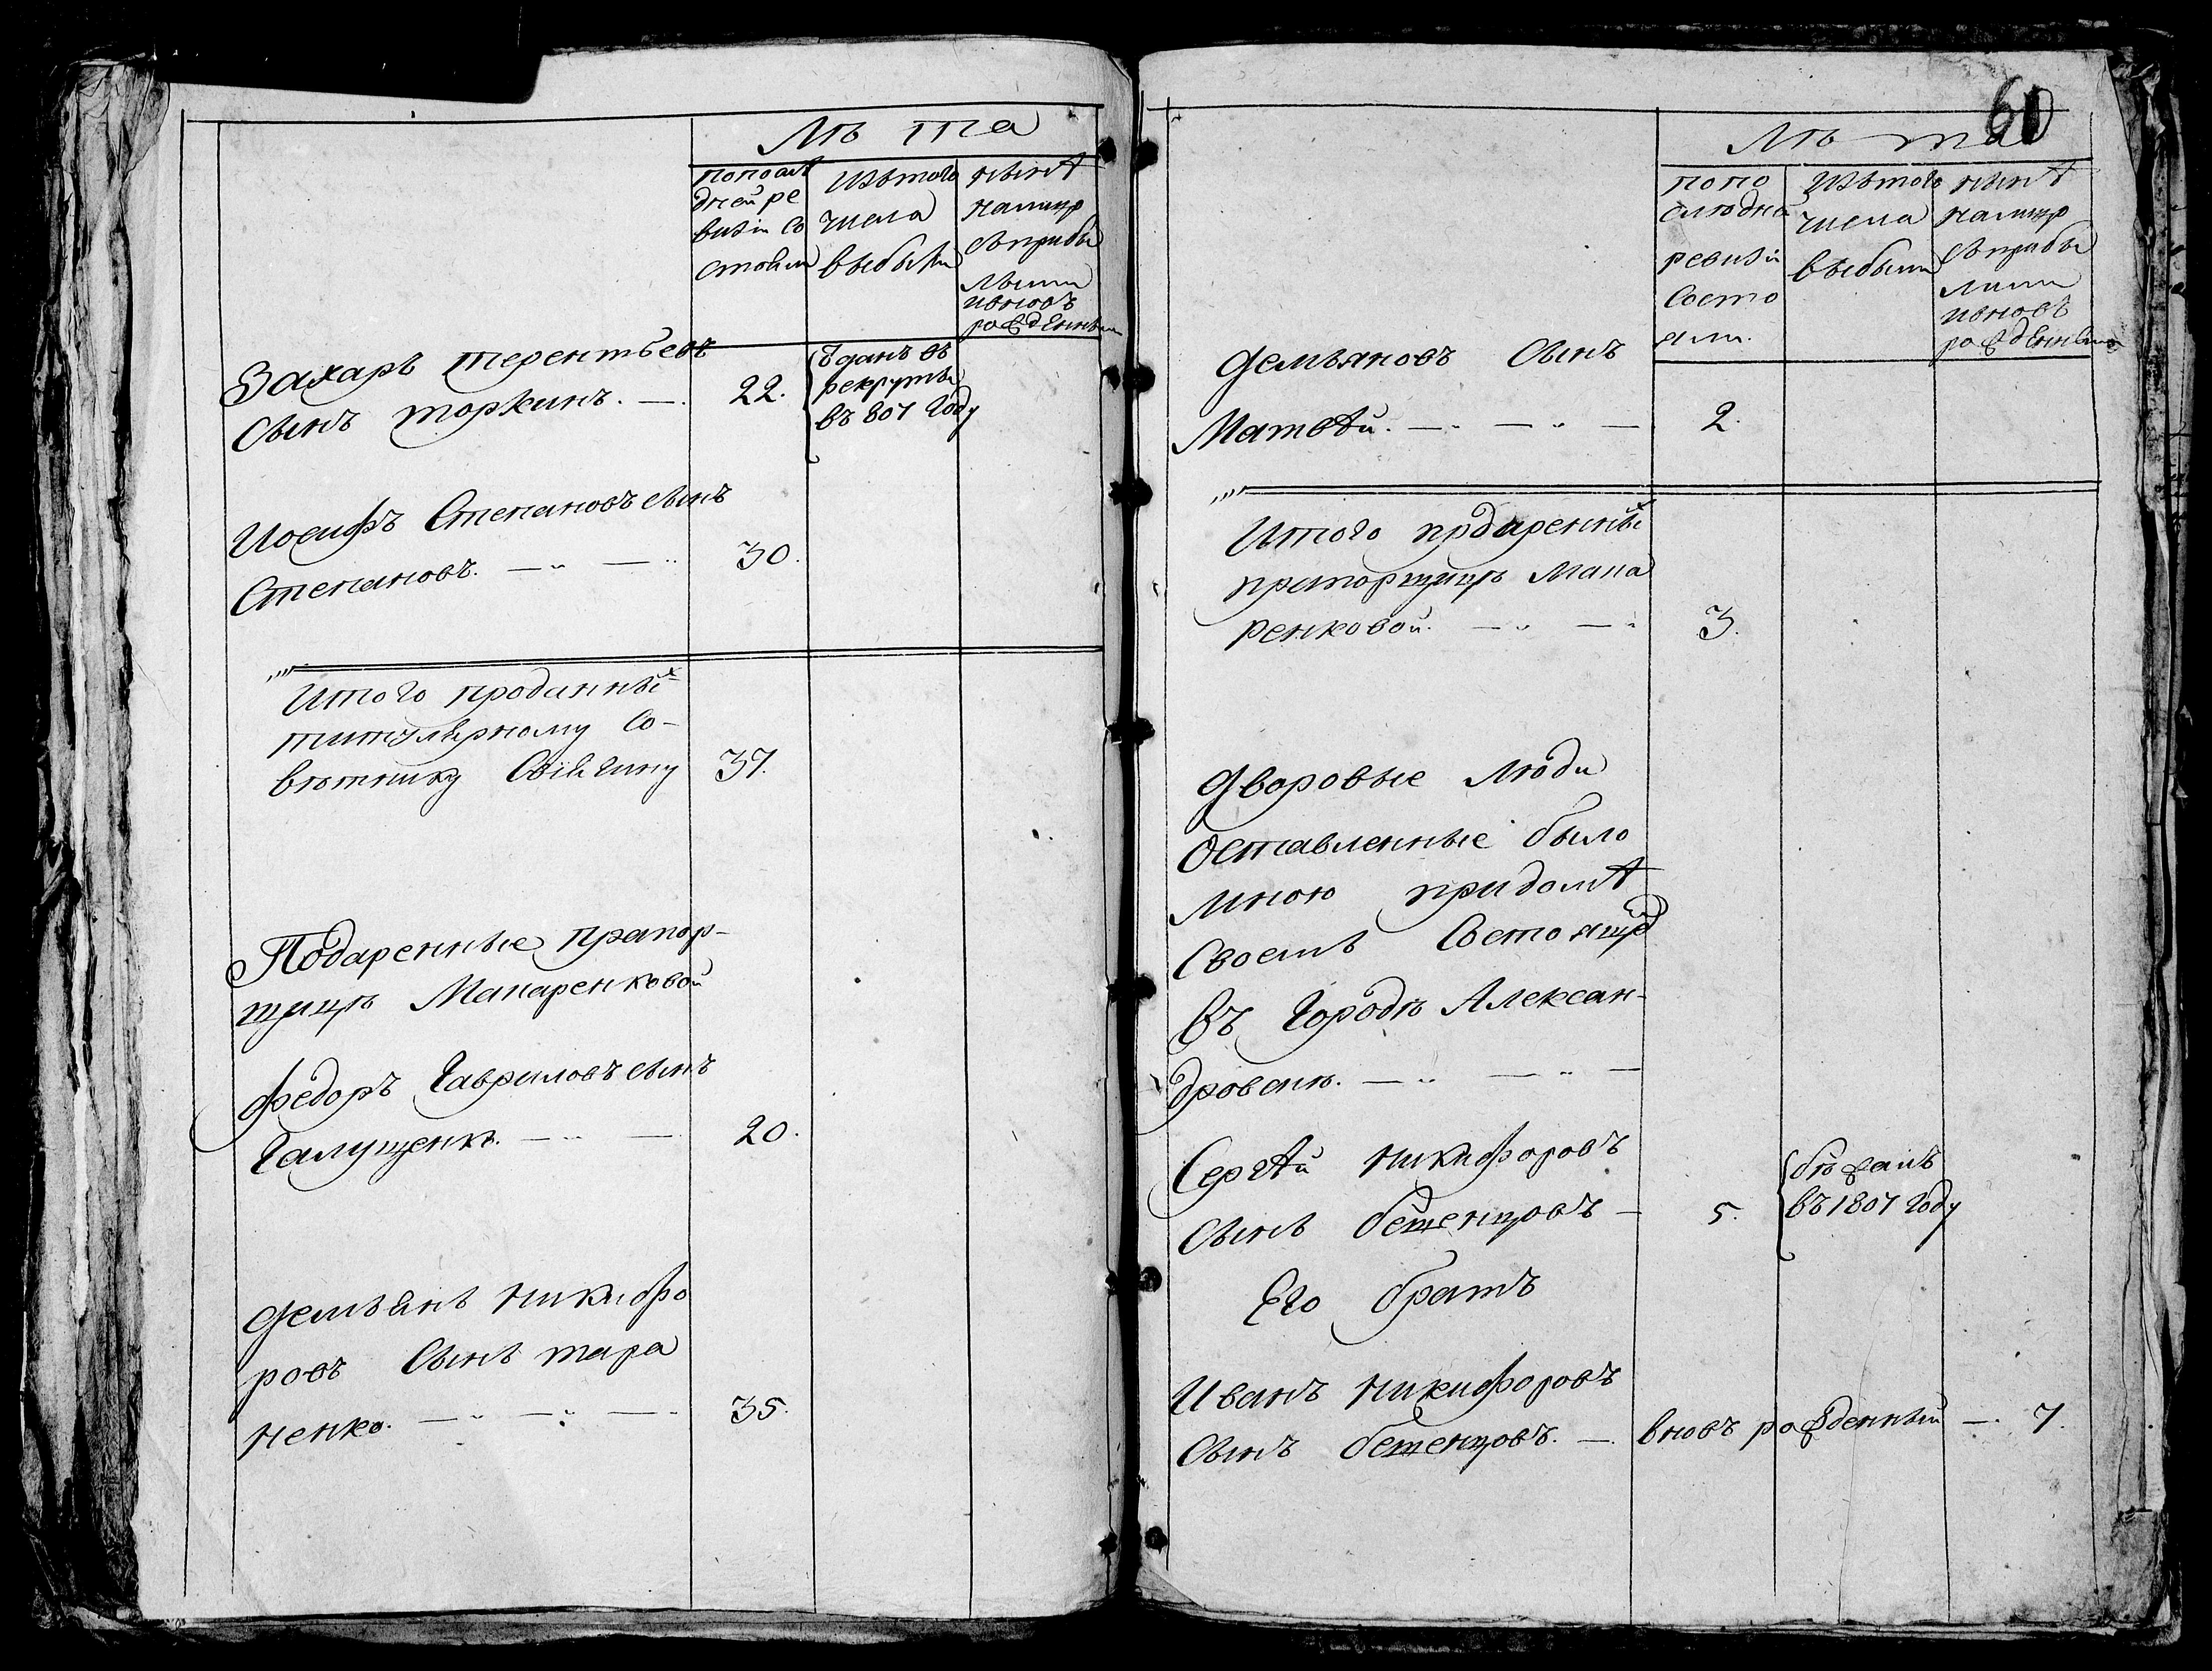 Лѣта
попослѣ
дней ре
визіи со
стояли
изъ того
числа
выбыли
нынѣ
на лицо
съ прибы
лыми
и вновь
рожденными
Захаръ терентьевъ
сынъ торкинъ. — 22.
отданъ въ
рекруты
въ 807 году
Иосифъ Степановъ сынъ
Степановъ. — „ — „ 30.
Итого проданныхъ
титулярному со-
вѣтнику 37.
Подаренные прапор-
щицѣ Мапаренковой
федоръ Гавриловъ сынъ
Галущенко. — „ — 20.
Демьянъ Никифо
ровъ сынъ тара
ненко. — „ — „ — 35.
60
Лѣта
по по
слѣдней
ревизіи
состо
яли.
изъ того
числа
выбыли
нынѣ
на лицо
съ прибы
лыми
и вновь
рожденными
Демьяновъ сынъ
Матвѣй. — „ — „ — 2.
Итого подаренныхъ
прапорщицѣ Мапа
ренковой. — „ — „ 3.
Дворовые люди
оставленные было
мною при домѣ
своемъ состоящемъ
въ городѣ Алексан-
дровскѣ. — „ — „ —
Сергѣй Никифоровъ
сынъ бешенцовъ — 5.
бѣжалъ
въ 1807 году
Его братъ
Иванъ Никифоровъ
сынъ бешенцовъ. — вновь рожденный — 7.